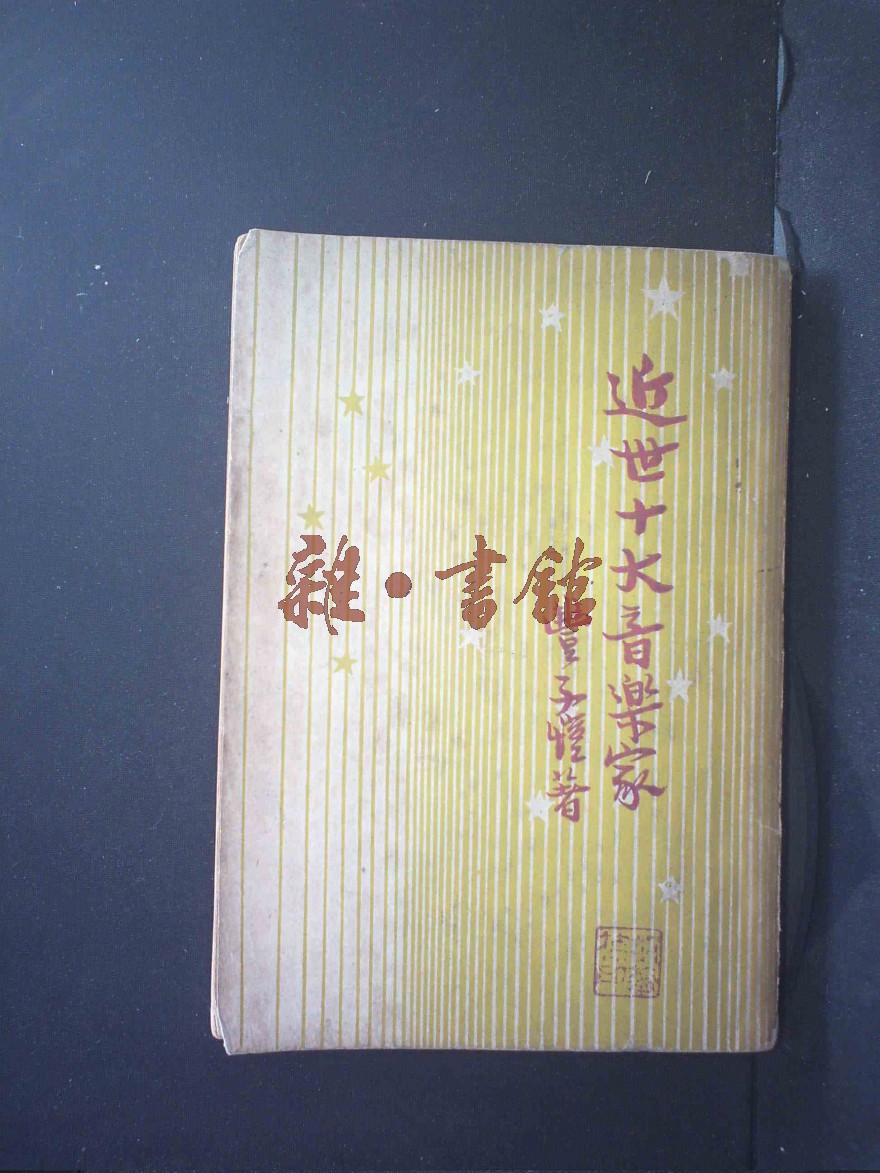 近世十大音樂家
豐子愷著
雜·書館